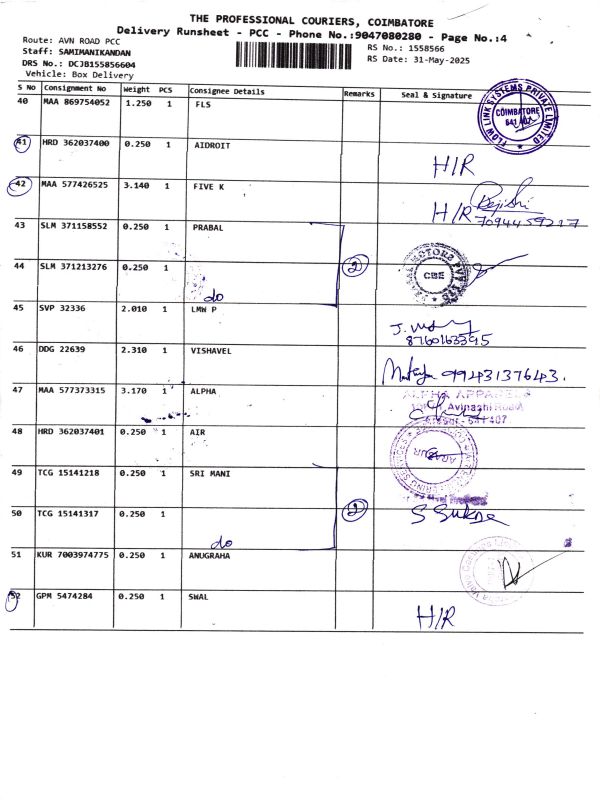 THE PROFESSIONAL COURIERS, COIMBATORE
Delivery Runsheet - PCC - Phone No.:9047080280 - Page No.:4
Route: AVN ROAD PCC
RS No.: 1558566
Staff: SAMIMANIKANDAN
RS Date: 31-May-2025
DRS No.: DCJB155856604
Vehicle: Box Delivery
S No Consignment No Weight PCS Consignee Details Remarks Seal & Signature
40 MAA 869754052 1.250 1 FLS
FLOW LINK SYSTEMS PRIVATE LIMITED
COIMBATORE
641 407
41 HRD 362037400 0.250 1 AIDROIT
H/R
42 MAA 577426525 3.140 1 FIVE K
H/R
7094459217
43 SLM 371158552 0.250 1 PRABAL
44 SLM 371213276 0.250 1
do
2
MOTORS PVT LTD
CBE
45 SVP 32336 2.010 1 LMW P
8760163395
46 DDG 22639 2.310 1 VISHAVEL
9943137643.
47 MAA 577373315 3.170 1 ALPHA
ALPHA APPARELS
Avinashi Road
641 407
48 HRD 362037401 0.250 1 AIR
49 TCG 15141218 0.250 1 SRI MANI
50 TCG 15141317 0.250 1
do
2
51 KUR 7003974775 0.250 1 ANUGRAHA
52 GPM 5474284 0.250 1 SWAL
H/R